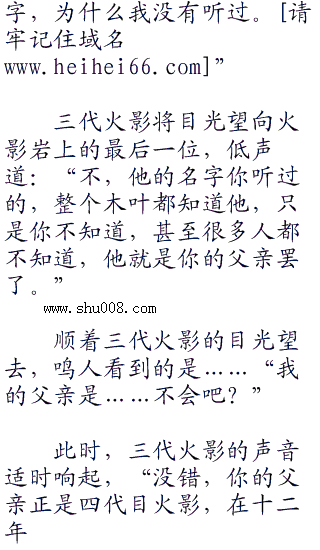 字，为什么我没有听过。[请
牢记住域名
www.heihei66.com]”
三代火影将目光望向火
影岩上的最后一位，低声
道：“不，他的名字你听过
的，整个木叶都知道他，只
是你不知道，甚至很多人都
不知道，他就是你的父亲罢
了。”
www.shu008.com
顺着三代火影的目光望
去，鸣人看到的是……“我
的父亲是……不会吧？”
此时，三代火影的声音
适时响起，“没错，你的父
亲正是四代目火影，在十二
年